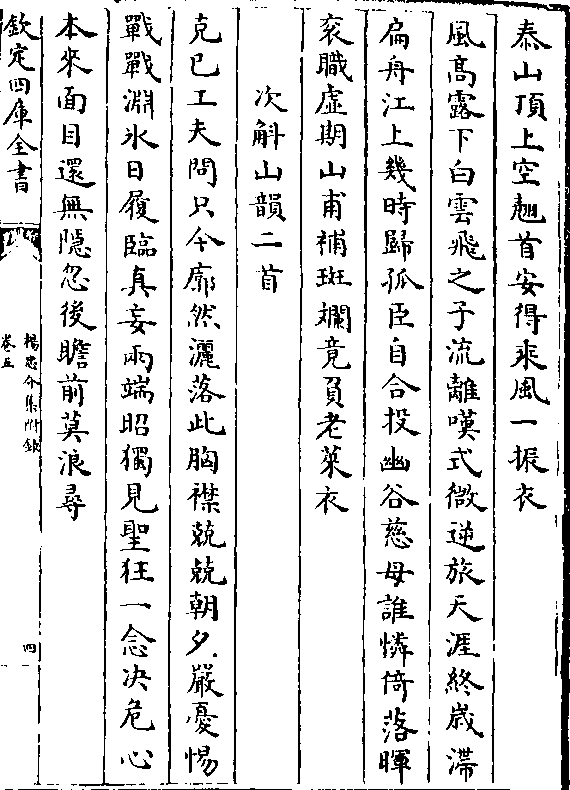 泰山頂上空翹首安得乘風一振衣
風髙露下白雲飛之子流離嘆式微逆旅天涯終歲滯
扁舟江上幾時歸孤臣自合投幽谷慈母誰憐倚落暉
衮職虚期山甫補斑斕竟負老萊衣
次斛山韻二首
克己工夫問只今廓然灑落此胸襟兢兢朝夕嚴憂惕
戰戰淵氷日履臨真妄兩端昭獨見聖狂一念决危心
本來面目還無隠忽後瞻前莫浪尋
欽定四庫全書
楊忠介集附録
卷五
四